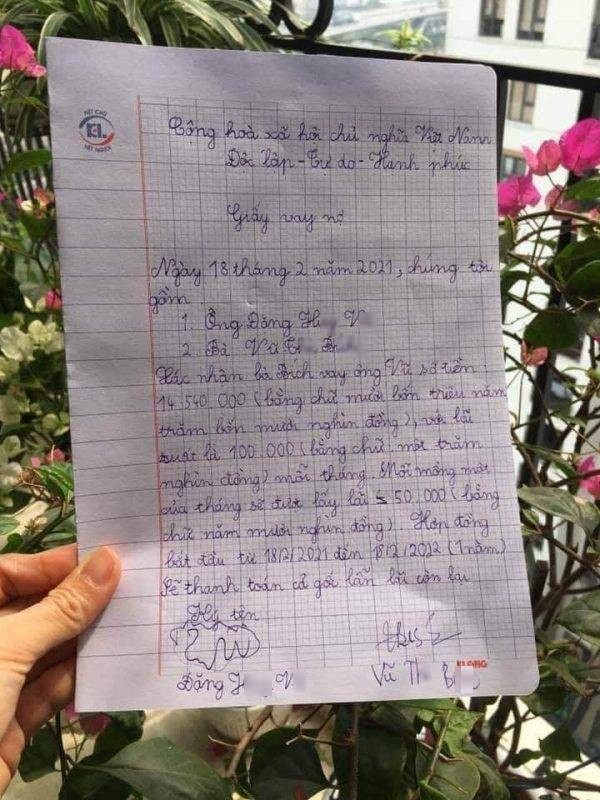 HẾT CHỮ
KL
HẾT NGƯỜI
Cộng hoà xã hội chủ nghĩa Việt Namm
Độc lập - Tự do - Hạnh phúc
Giấy vay nợ
Ngày 18 tháng 2 năm 2021, chúng tôi
gồm
1. Ông Đặng H V
2. Bà Vũ T B
Xác nhận bà Bích vay ông Vũ số tiền
14 540 000 (bằng chữ mười bốn triệu năm
trăm bốn mươi nghìn đồng), với lãi
suất là 100.000 (bằng chữ một trăm
nghìn đồng) mỗi tháng. Mỗi mồng một
của tháng sẽ được lấy lãi 50.000 (bằng
chữ năm mươi nghìn đồng). Hợp đồng
bắt đầu từ 18/2/2021 đến 18/2/2022 (1 năm)
Sẽ thanh toán cả gốc lẫn lãi còn lại
Ký tên
KLONG
Đặng H V Vũ Th B